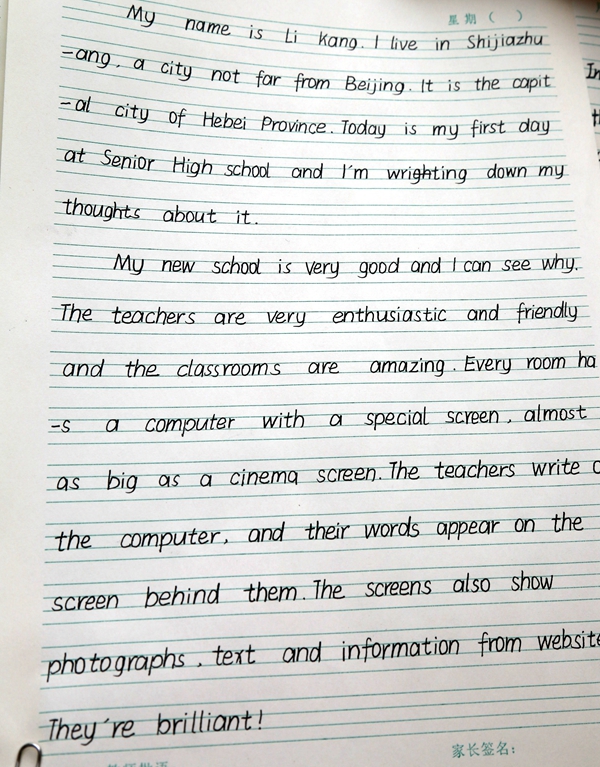 星期（ ）
My name is Li Kang. I live in Shijiazhu
-ang, a city not far from Beijing. It is the capit
-al city of Hebei Province. Today is my first day
at Senior High school and I'm wrighting down my
thoughts about it.
My new school is very good and I can see why.
The teachers are very enthusiastic and friendly
and the classrooms are amazing. Every room ha
-s a computer with a special screen, almost
as big as a cinema screen. The teachers write
the computer, and their words appear on the
screen behind them. The screens also show
photographs, text and information from website
They're brilliant!
家长签名：